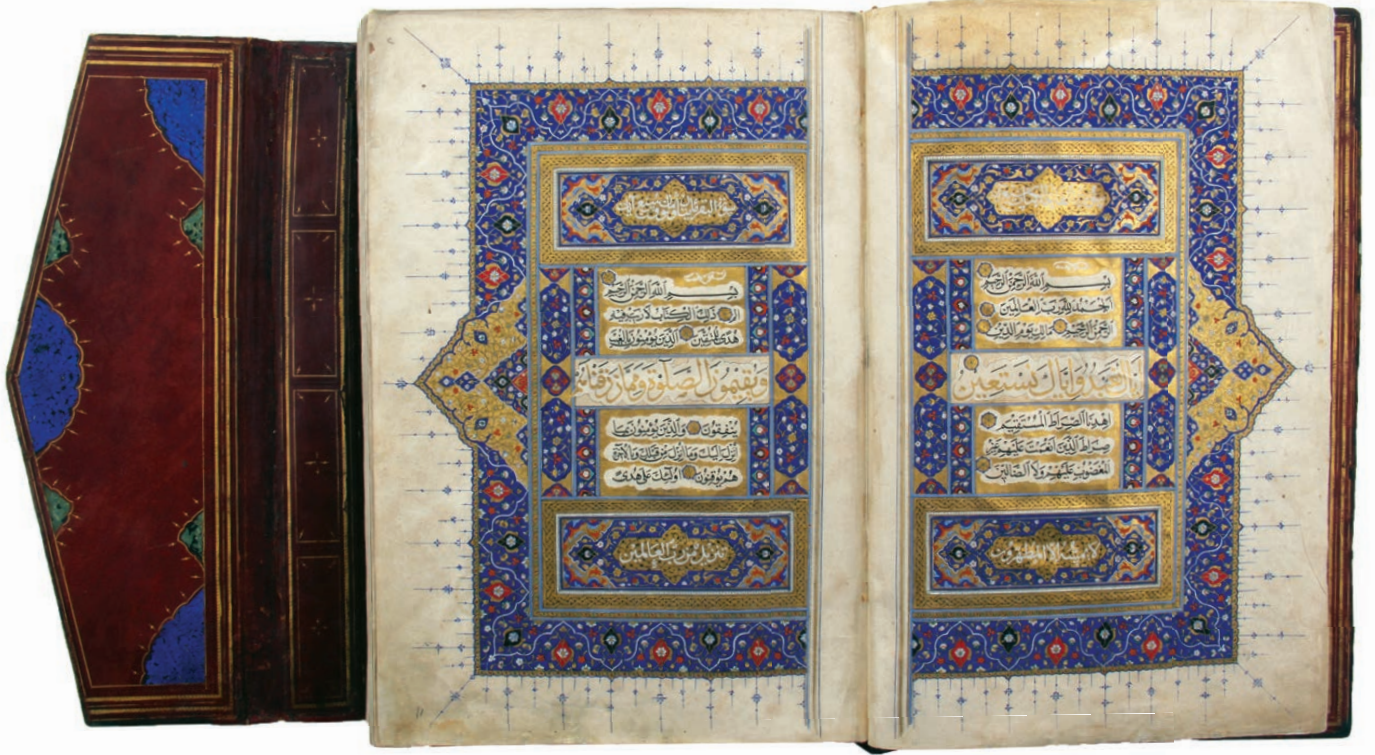 بِسْمِ اللَّهِ الرَّحْمَنِ الرَّحِيمِ
الْحَمْدُ لِلَّهِ رَبِّ الْعَالَمِينَ
الرَّحْمَنِ الرَّحِيمِ مَالِكِ يَوْمِ الدِّينِ
إِيَّاكَ نَعْبُدُ وَإِيَّاكَ نَسْتَعِينُ
اهْدِنَا الصِّرَاطَ الْمُسْتَقِيمَ
صِرَاطَ الَّذِينَ أَنْعَمْتَ عَلَيْهِمْ غَيْرِ
الْمَغْضُوبِ عَلَيْهِمْ وَلَا الضَّالِّينَ
لَا يَمَسُّهُ إِلَّا الْمُطَهَّرُونَ
بِسْمِ اللَّهِ الرَّحْمَنِ الرَّحِيمِ
الم ذَلِكَ الْكِتَابُ لَا رَيْبَ فِيهِ
هُدًى لِلْمُتَّقِينَ الَّذِينَ يُؤْمِنُونَ بِالْغَيْبِ
وَيُقِيمُونَ الصَّلَوةَ وَمِمَّا رَزَقْنَاهُمْ
يُنْفِقُونَ وَالَّذِينَ يُؤْمِنُونَ بِمَا
أُنْزِلَ إِلَيْكَ وَمَا أُنْزِلَ مِنْ قَبْلِكَ وَبِالْآخِرَةِ
هُمْ يُوقِنُونَ أُولَئِكَ عَلَى هُدًى
تَنْزِيلٌ مِنْ رَبِّ الْعَالَمِينَ